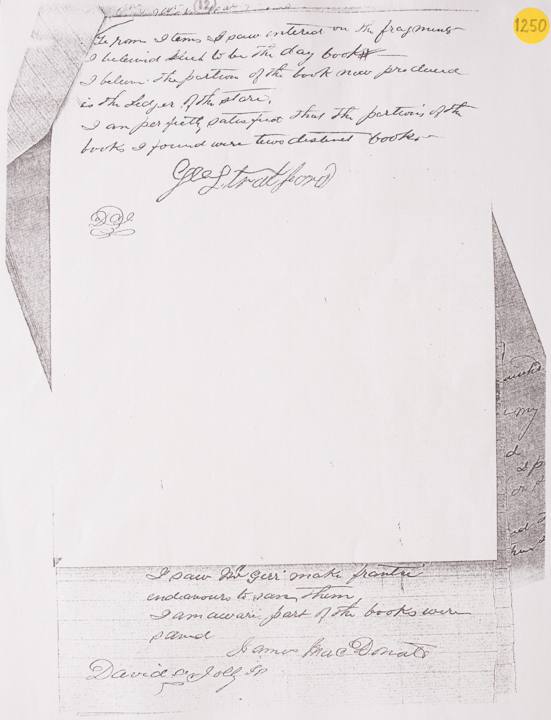 1250
12
From items I saw entered on the fragments
I believed such to be the day book
I believe the portion of the book now produced
is the Ledger of the store.
I am perfectly satisfied that the portions of the
books I found were two distinct books.
Geo Stratford
I saw Mr Geer make frantic
endeavours to save them
I am aware part of the books were
saved
James MacDonald
David
my
d